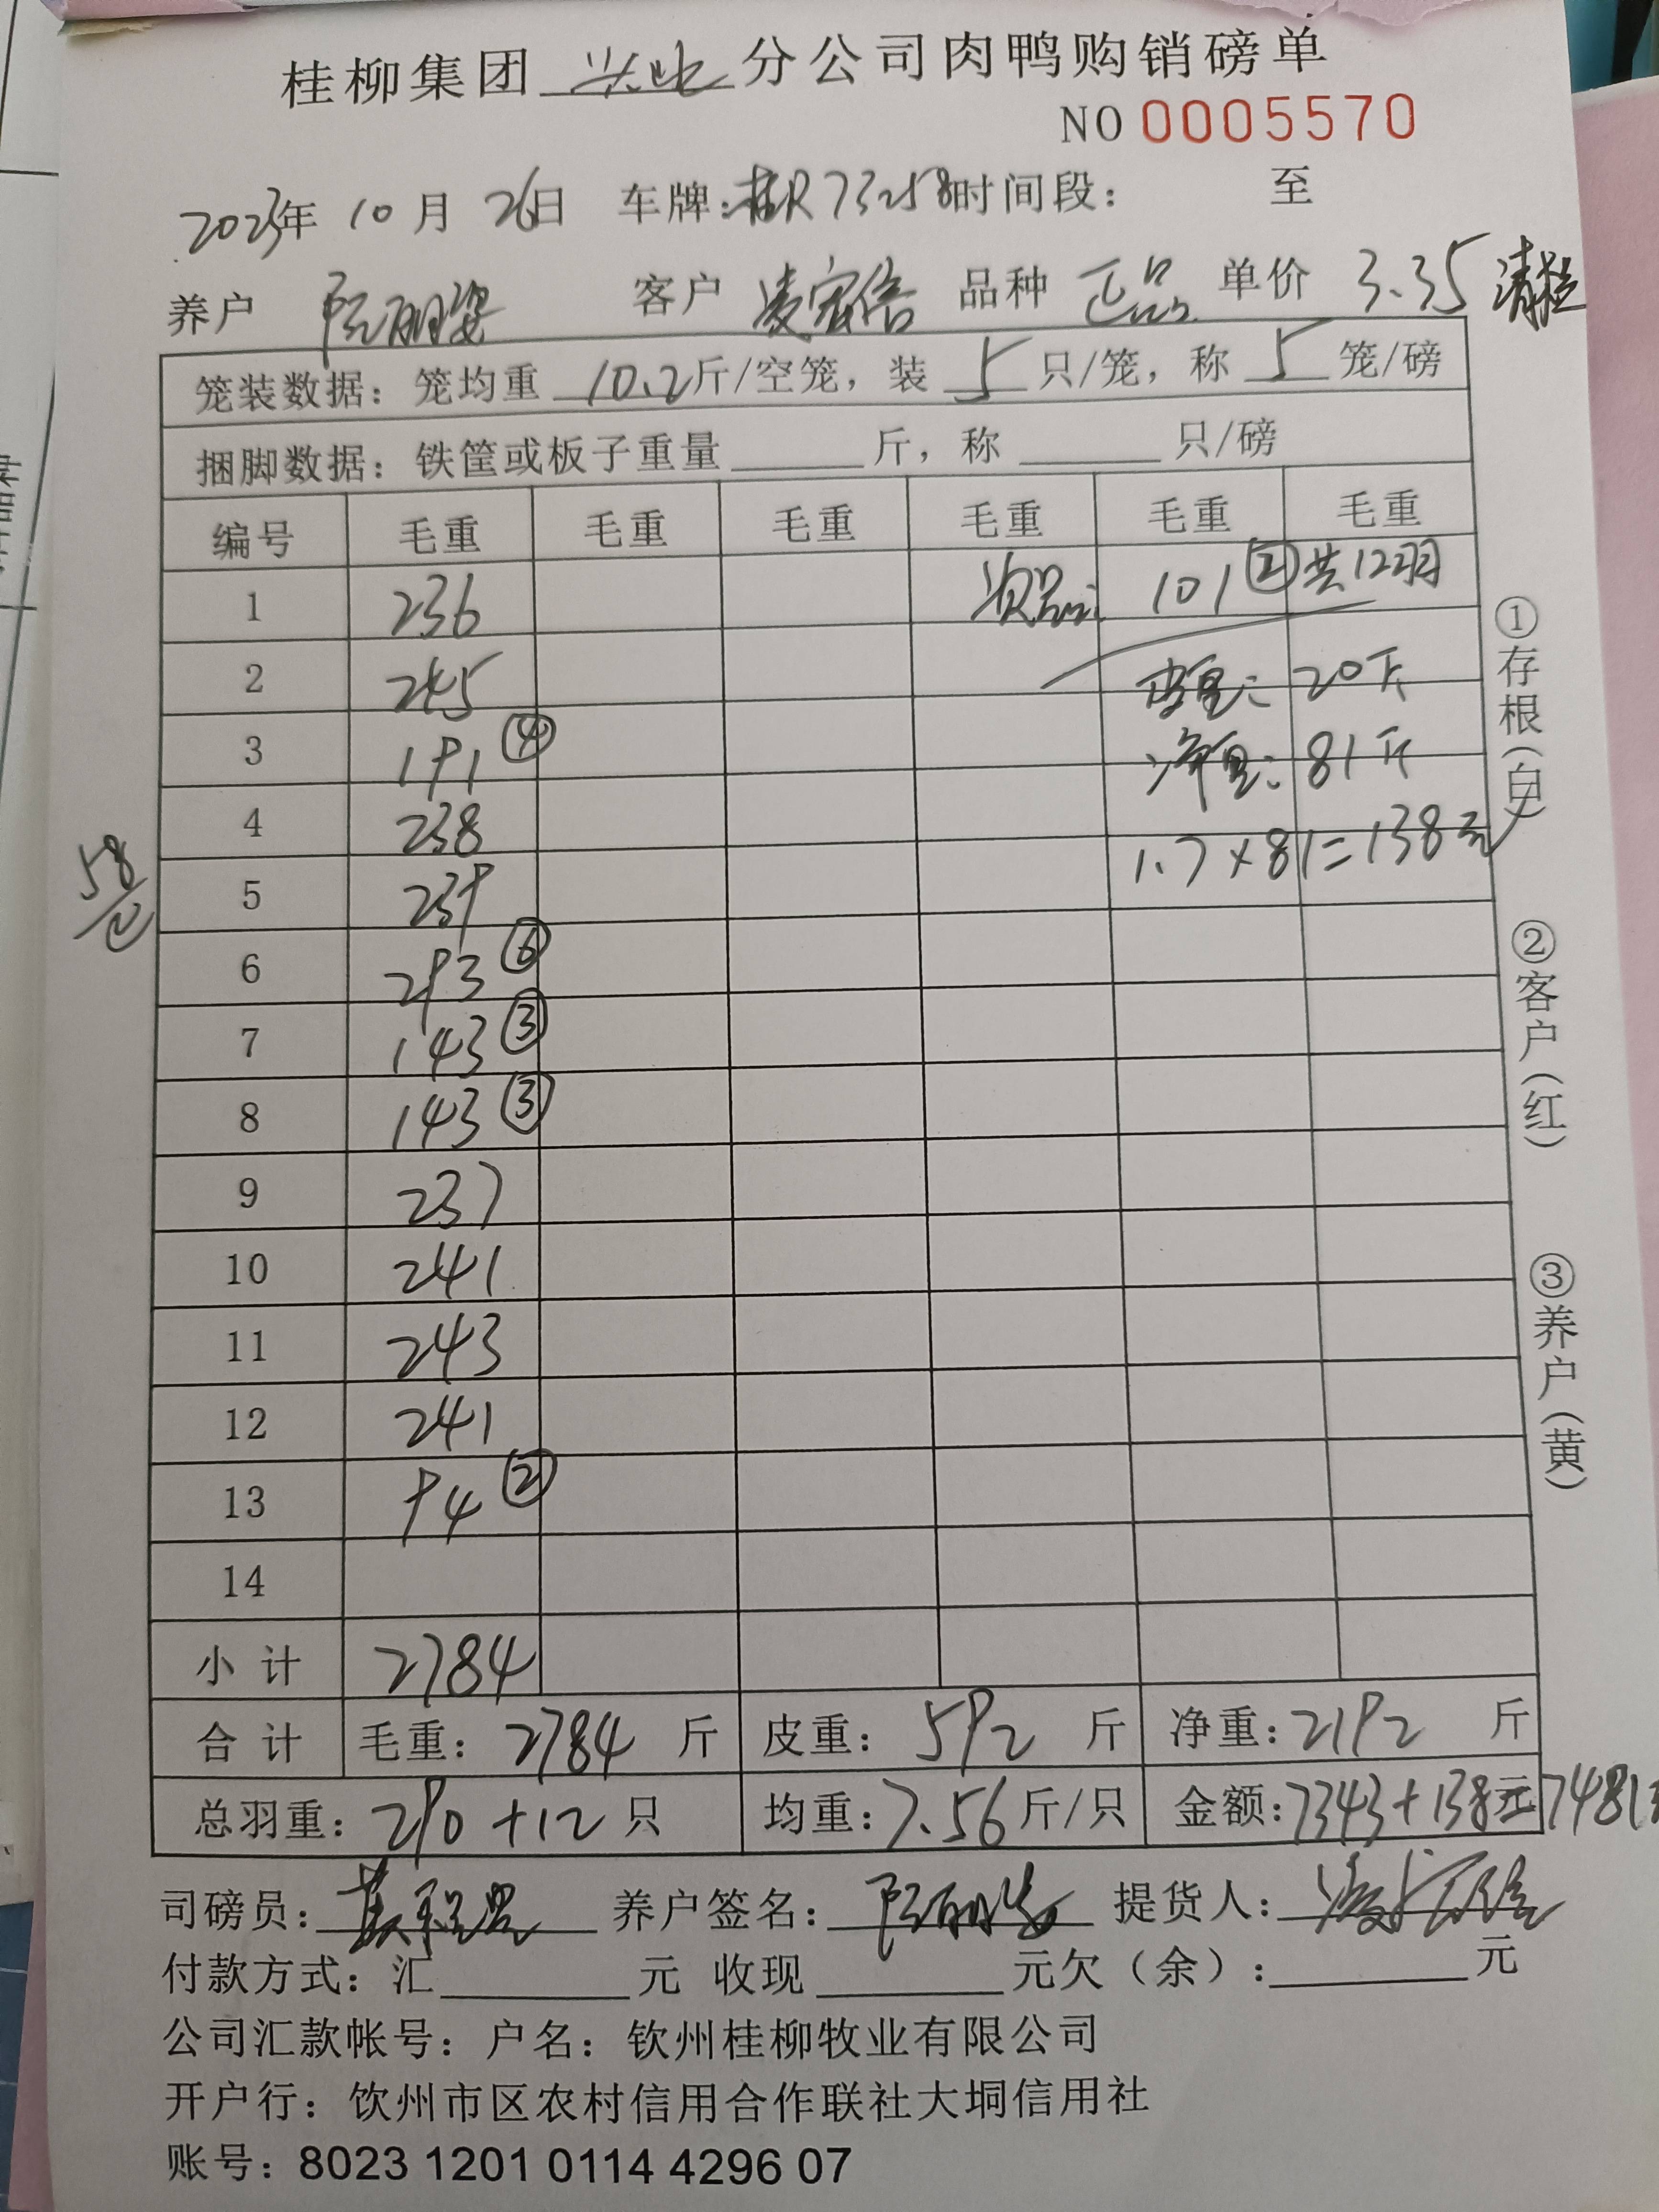 桂柳集团 兴业 分公司肉鸭购销磅单
NO 0005570
2023年 10 月 26日 车牌:桂R73258时间段: 至
养户 客户 凌宏信 品种 正品 单价 3.35
笼装数据:笼均重 10.2斤/空笼,装 5 只/笼,称 5 笼/磅
捆脚数据:铁筐或板子重量 斤,称 只/磅
编号 毛重 毛重 毛重 毛重 毛重 毛重
1 236 次品: 101 ② 共12羽
2 245 皮重: 20斤
3 191 ④ 净重: 81斤
4 238 1.7×81=138元
5 239
6 293 ⑥
7 143 ③
8 143 ③
9 237
10 241
11 243
12 241
13 94 ②
14
58
小计 2784
合计 毛重: 2784 斤 皮重: 592 斤 净重: 2192 斤
总羽重: 290+12 只 均重: 7.56 斤/只 金额: 7343+138元 7481
司磅员: 养户签名: 提货人:
付款方式:汇 元 收现 元欠(余): 元
公司汇款帐号:户名:钦州桂柳牧业有限公司
开户行:钦州市区农村信用合作联社大垌信用社
账号:8023 1201 0114 4296 07
①存根(白)
②客户(红)
③养户(黄)